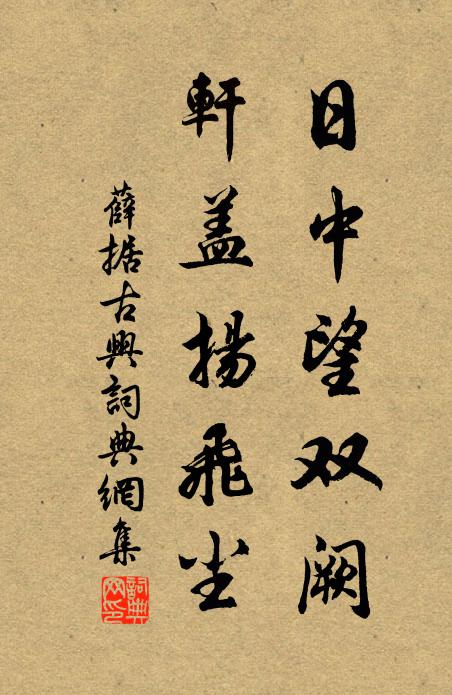 日中望双阙
軒盖揚飛尘
薛据古興詞典網集
詞典網印